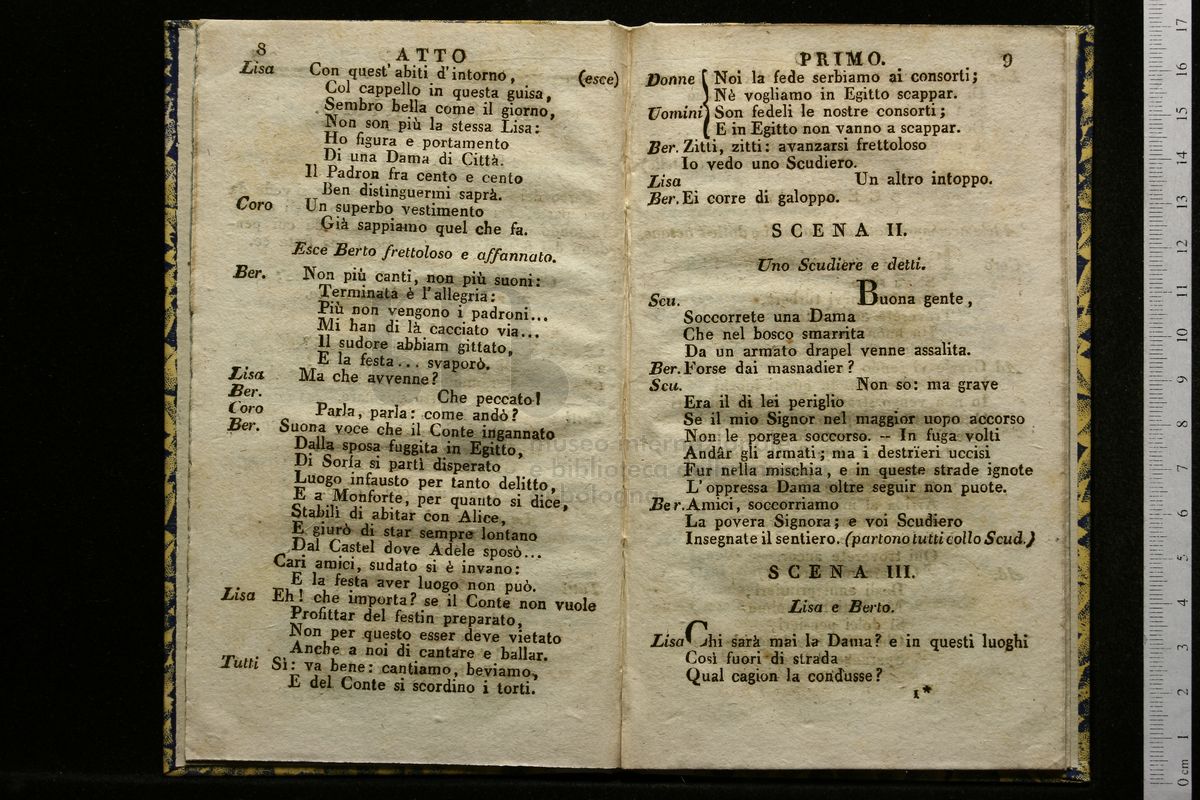 8
ATTO
Lisa Con quest' abiti d'intorno, (esce)
Col cappello in questa guisa,
Sembro bella come il giorno,
Non son più la stessa Lisa:
Ho figura e portamento
Di una Dama di Città.
Il Padron fra cento e cento
Ben distinguermi saprà.
Coro Un superbo vestimento
Già sappiamo quel che fa.
Esce Berto frettoloso e affannato.
Ber. Non più canti, non più suoni:
Terminata è l'allegria:
Più non vengono i padroni...
Mi han di là cacciato via...
Il sudore abbiam gittato,
E la festa... svaporò.
Lisa Ma che avvenne?
Ber. Che peccato!
Coro Parla, parla: come andò?
Ber. Suona voce che il Conte ingannato
Dalla sposa fuggita in Egitto,
Di Soria si partì disperato
Luogo infausto per tanto delitto,
E a Monforte, per quanto si dice,
Stabilì di abitar con Alice,
E giurò di star sempre lontano
Dal Castel dove Adele sposò...
Cari amici, sudato si è invano:
E la festa aver luogo non può.
Lisa Eh! che importa? se il Conte non vuole
Profittar del festin preparato,
Non per questo esser deve vietato
Anche a noi di cantare e ballar.
Tutti Sì: va bene: cantiamo, beviamo,
E del Conte si scordino i torti.
PRIMO. 9
Donne Noi la fede serbiamo ai consorti;
Nè vogliamo in Egitto scappar.
Uomini Son fedeli le nostre consorti;
E in Egitto non vanno a scappar.
Ber. Zitti, zitti: avanzarsi frettoloso
Io vedo uno Scudiero.
Lisa Un altro intoppo.
Ber. Ei corre di galoppo.
SCENA II.
Uno Scudiere e detti.
Scu. Buona gente,
Soccorrete una Dama
Che nel bosco smarrita
Da un armato drapel venne assalita.
Ber. Forse dai masnadier?
Scu. Non so: ma grave
Era il di lei periglio
Se il mio Signor nel maggior uopo accorso
Non le porgea soccorso. — In fuga volti
Andâr gli armati; ma i destrieri uccisi
Fur nella mischia, e in queste strade ignote
L'oppressa Dama oltre seguir non puote.
Ber. Amici, soccorriamo
La povera Signora; e voi Scudiero
Insegnate il sentiero. (partono tutti collo Scud.)
SCENA III.
Lisa e Berto.
Lisa Chi sarà mai la Dama? e in questi luoghi
Così fuori di strada
Qual cagion la condusse?
1*
museo internaz
e biblioteca
bologna
0 cm 1 2 3 4 5 6 7 8 9 10 11 12 13 14 15 16 17